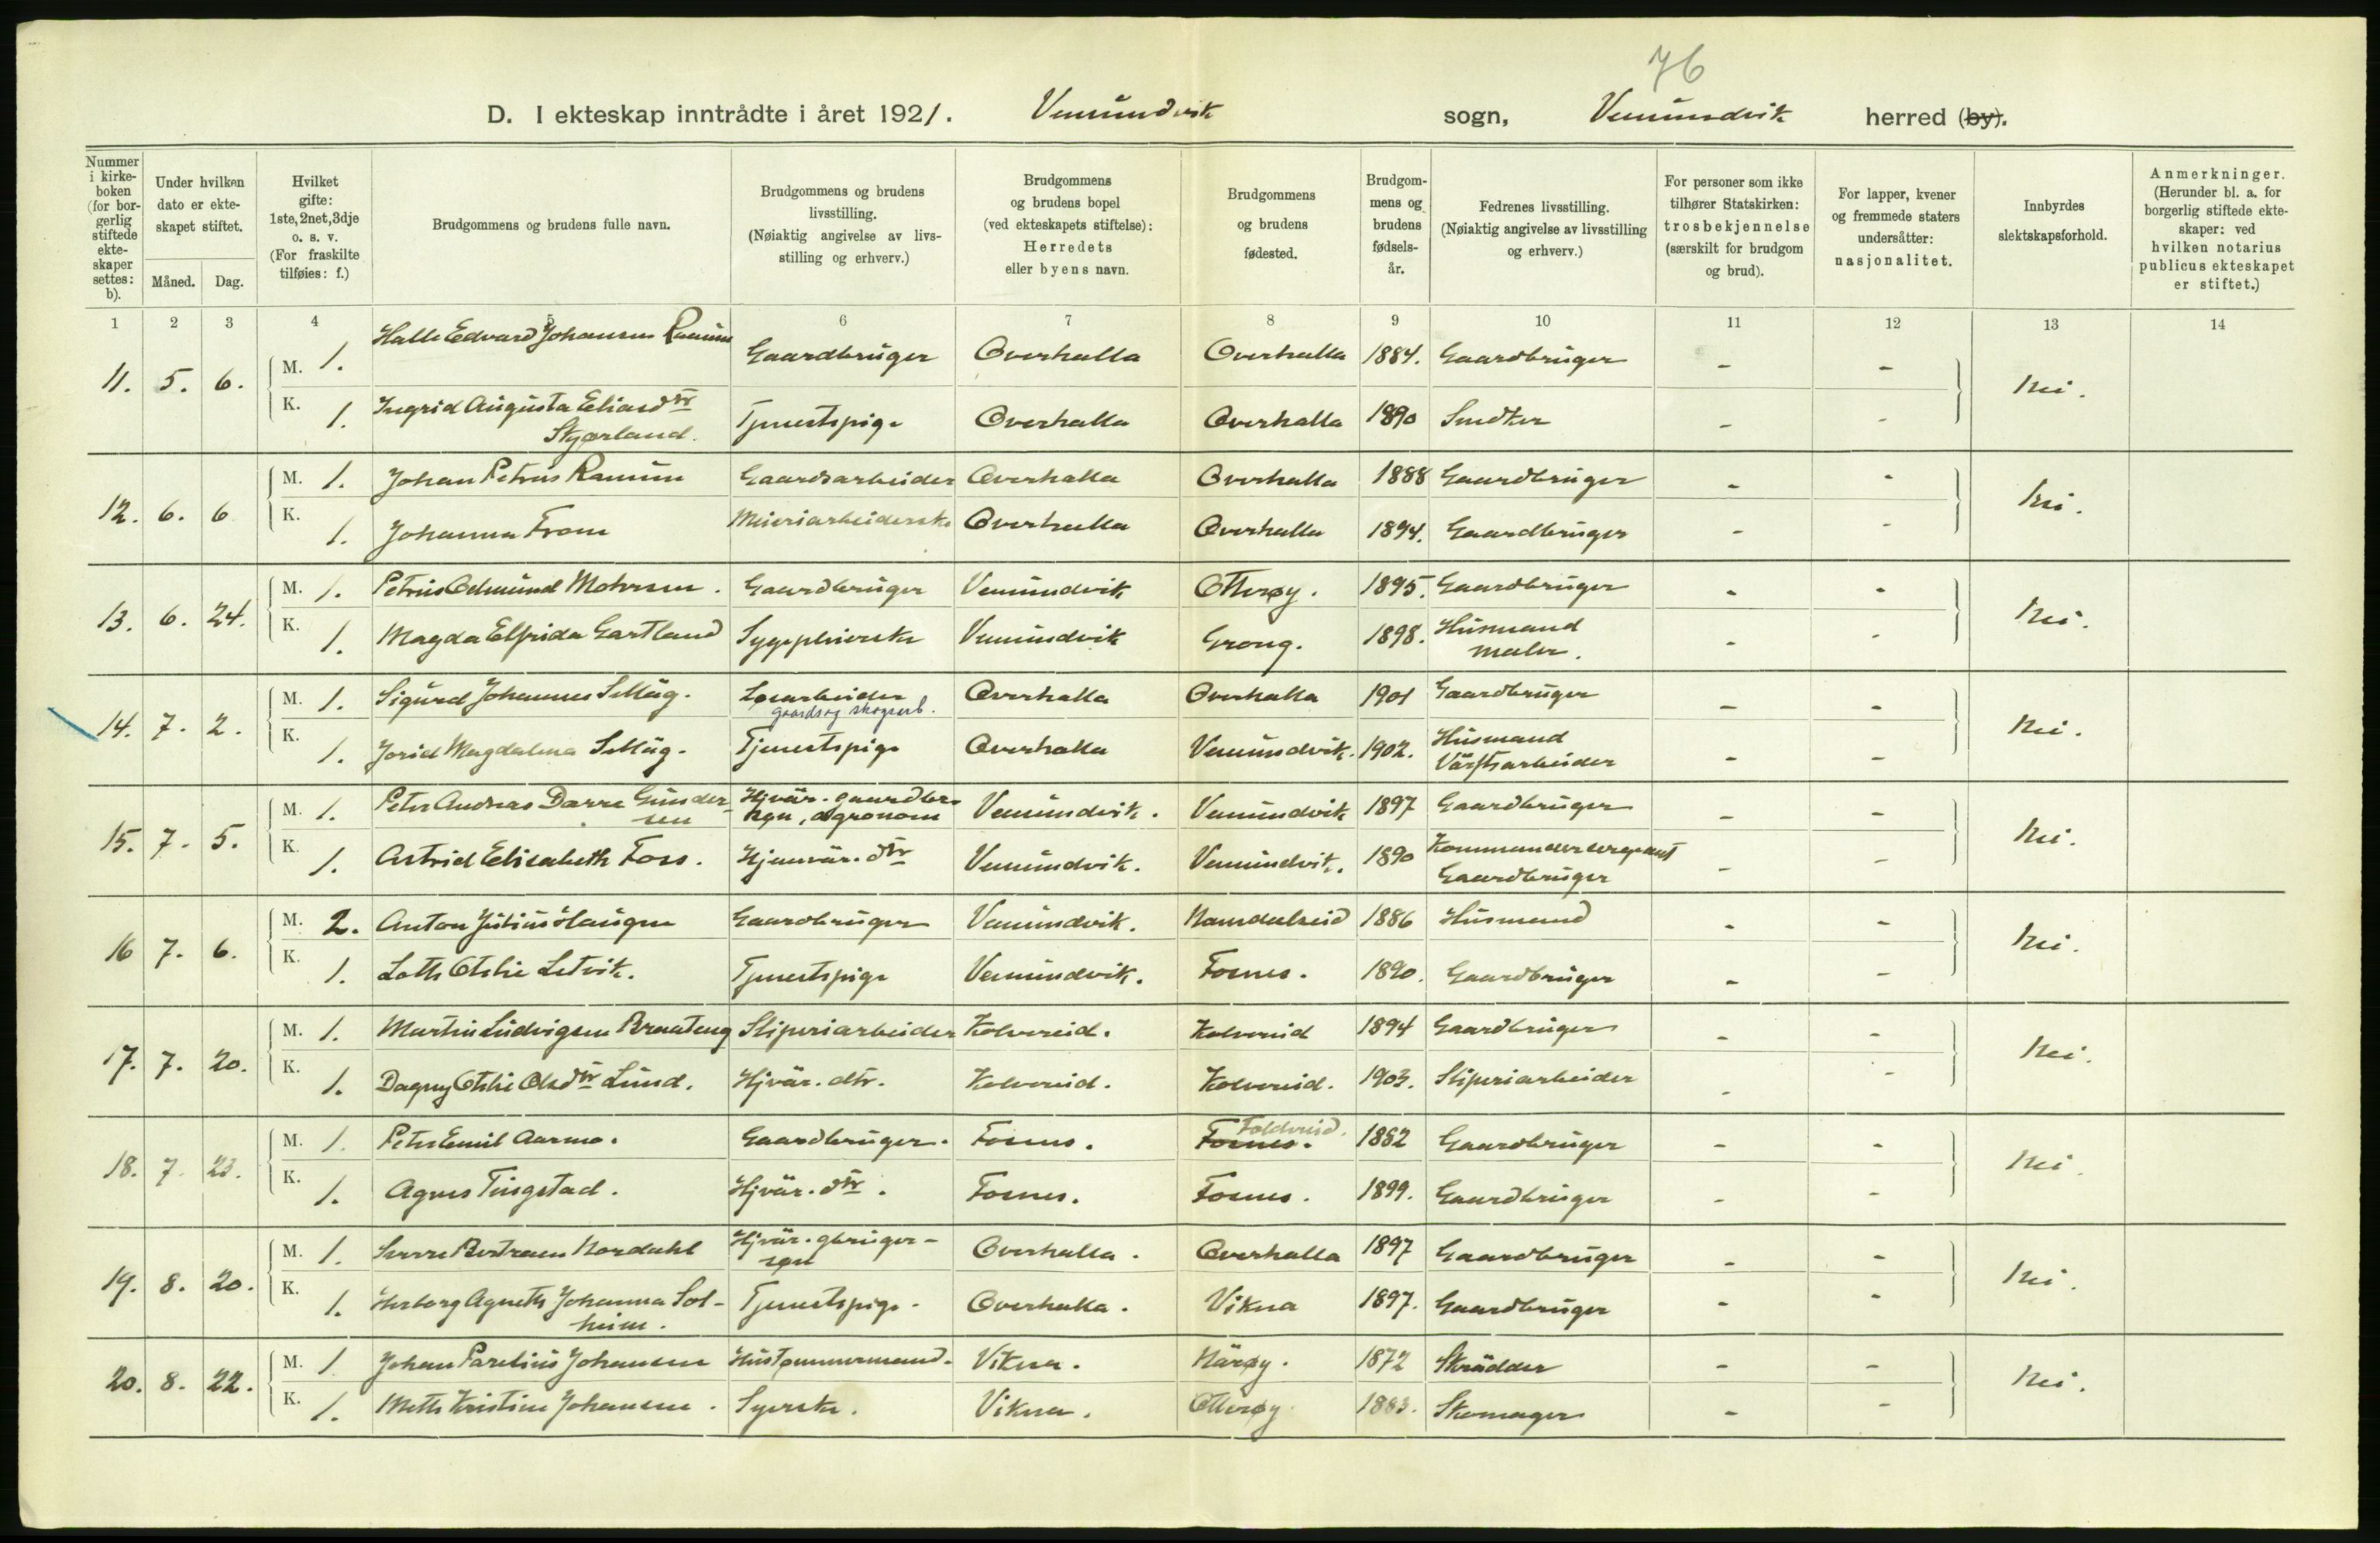 76
D. I ekteskap inntrådte i året 1921. Vemundvik sogn, Vemundvik herred (by).
Nummer i kirkeboken (for borgerlig stiftede ekteskaper settes: b).
Under hvilken dato er ekteskapet stiftet.
Måned. Dag.
Hvilket gifte: 1ste, 2net, 3dje o. s. v. (For fraskilte tilføies: f.)
Brudgommens og brudens fulle navn.
Brudgommens og brudens livsstilling. (Nøiaktig angivelse av livsstilling og erhverv.)
Brudgommens og brudens bopel (ved ekteskapets stiftelse): Herredets eller byens navn.
Brudgommens og brudens fødested.
Brudgommens og brudens fødselsår.
Fedrenes livsstilling. (Nøiaktig angivelse av livsstilling og erhverv.)
For personer som ikke tilhører Statskirken: trosbekjennelse (særskilt for brudgom og brud).
For lapper, kvener og fremmede staters undersåtter: nasjonalitet.
Innbyrdes slektskapsforhold.
Anmerkninger. (Herunder bl. a. for borgerlig stiftede ekteskaper: ved hvilken notarius publicus ekteskapet er stiftet.)
1 2 3 4 5 6 7 8 9 10 11 12 13 14
11. 5. 6. M. 1. Halle Edvard Johansen Ramum Gaardbruger Overhalla Overhalla 1884. Gaardbruger - - Nei.
K. 1. Ingrid Augusta Eliasdtr Skjørland. Tjenestpige Overhalla Overhalla 1890 Snedker - -
12. 6. 6 M. 1. Johan Petrus Ramum Gaardsarbeider Overhalla Overhalla 1888 Gaardbruger - - Nei.
K. 1. Johanna From Meieriarbeiderske Overhalla Overhalla 1894. Gaardbruger - -
13. 6. 24. M. 1. Petrus Odmund Mohrsen. Gaardbruger Vemundvik Otterøy. 1895. Gaardbruger - - Nei.
K. 1. Magda Elfrida Gartland Sygepleierske Vemundvik Grong. 1898. Husmand maler. - -
14. 7. 2. M. 1. Sigurd Johannes Selläg. Løsarbeider gaards og skogsarb. Overhalla Overhalla 1901 Gaardbruger - - Nei.
K. 1. Jorid Magdalena Selläg. Tjenestpige Overhalla Vemundvik. 1902. Husmand Värftsarbeider - -
15. 7. 5. M. 1. Peter Andreas Darre Gundersen Hjvär. gaardbr. søn, agronom Vemundvik. Vemundvik 1897 Gaardbruger - - Nei.
K. 1. Astrid Elisabeth Foss. Hjemvär. dtr Vemundvik. Vemundvik. 1890 Kommandersergeant Gaardbruger - -
16 7. 6. M. 2. Anton Julius Haugen Gaardbruger Vemundvik. Namdalseid 1886 Husmand - - Nei.
K. 1. Lotte Otelie Setvik. Tjenestpige Vemundvik. Fosnes. 1890. Gaardbruger - -
17. 7. 20. M. 1. Martin Ludvigsen Braateng Sliperiarbeider Kolvereid. Kolvereid 1894 Gaardbruger - - Nei.
K. 1. Dagny Otelie Olsdtr Lund. Hjvär. dtr. Kolvereid. Kolvereid. 1903. Sliperiarbeider - -
18. 7. 23. M. 1. Peter Emil Aarmo. Gaardbruger. Fosnes. Fosnes. Foldereid. 1882 Gaardbruger - - Nei.
K. 1. Agnes Tingstad. Hjvär. dtr. Fosnes. Fosnes. 1899. Gaardbruger - -
19. 8. 20. M. 1. Sverre Bertraen Nordahl Hjvär. gbrugersøn Overhalla. Overhalla 1897 Gaardbruger - - Nei.
K. 1. Herborg Agnethe Johanna Solheim. Tjenestpige. Overhalla. Vikna 1897. Gaardbruger - -
20. 8. 22. M. 1 Johan Parelius Johansen Hustømmermand. Vikna. Närøy. 1872 Skrädder - - Nei.
K. 1. Mette Kristine Johansen. Syerske. Vikna. Otterøy. 1883. Skomager - -